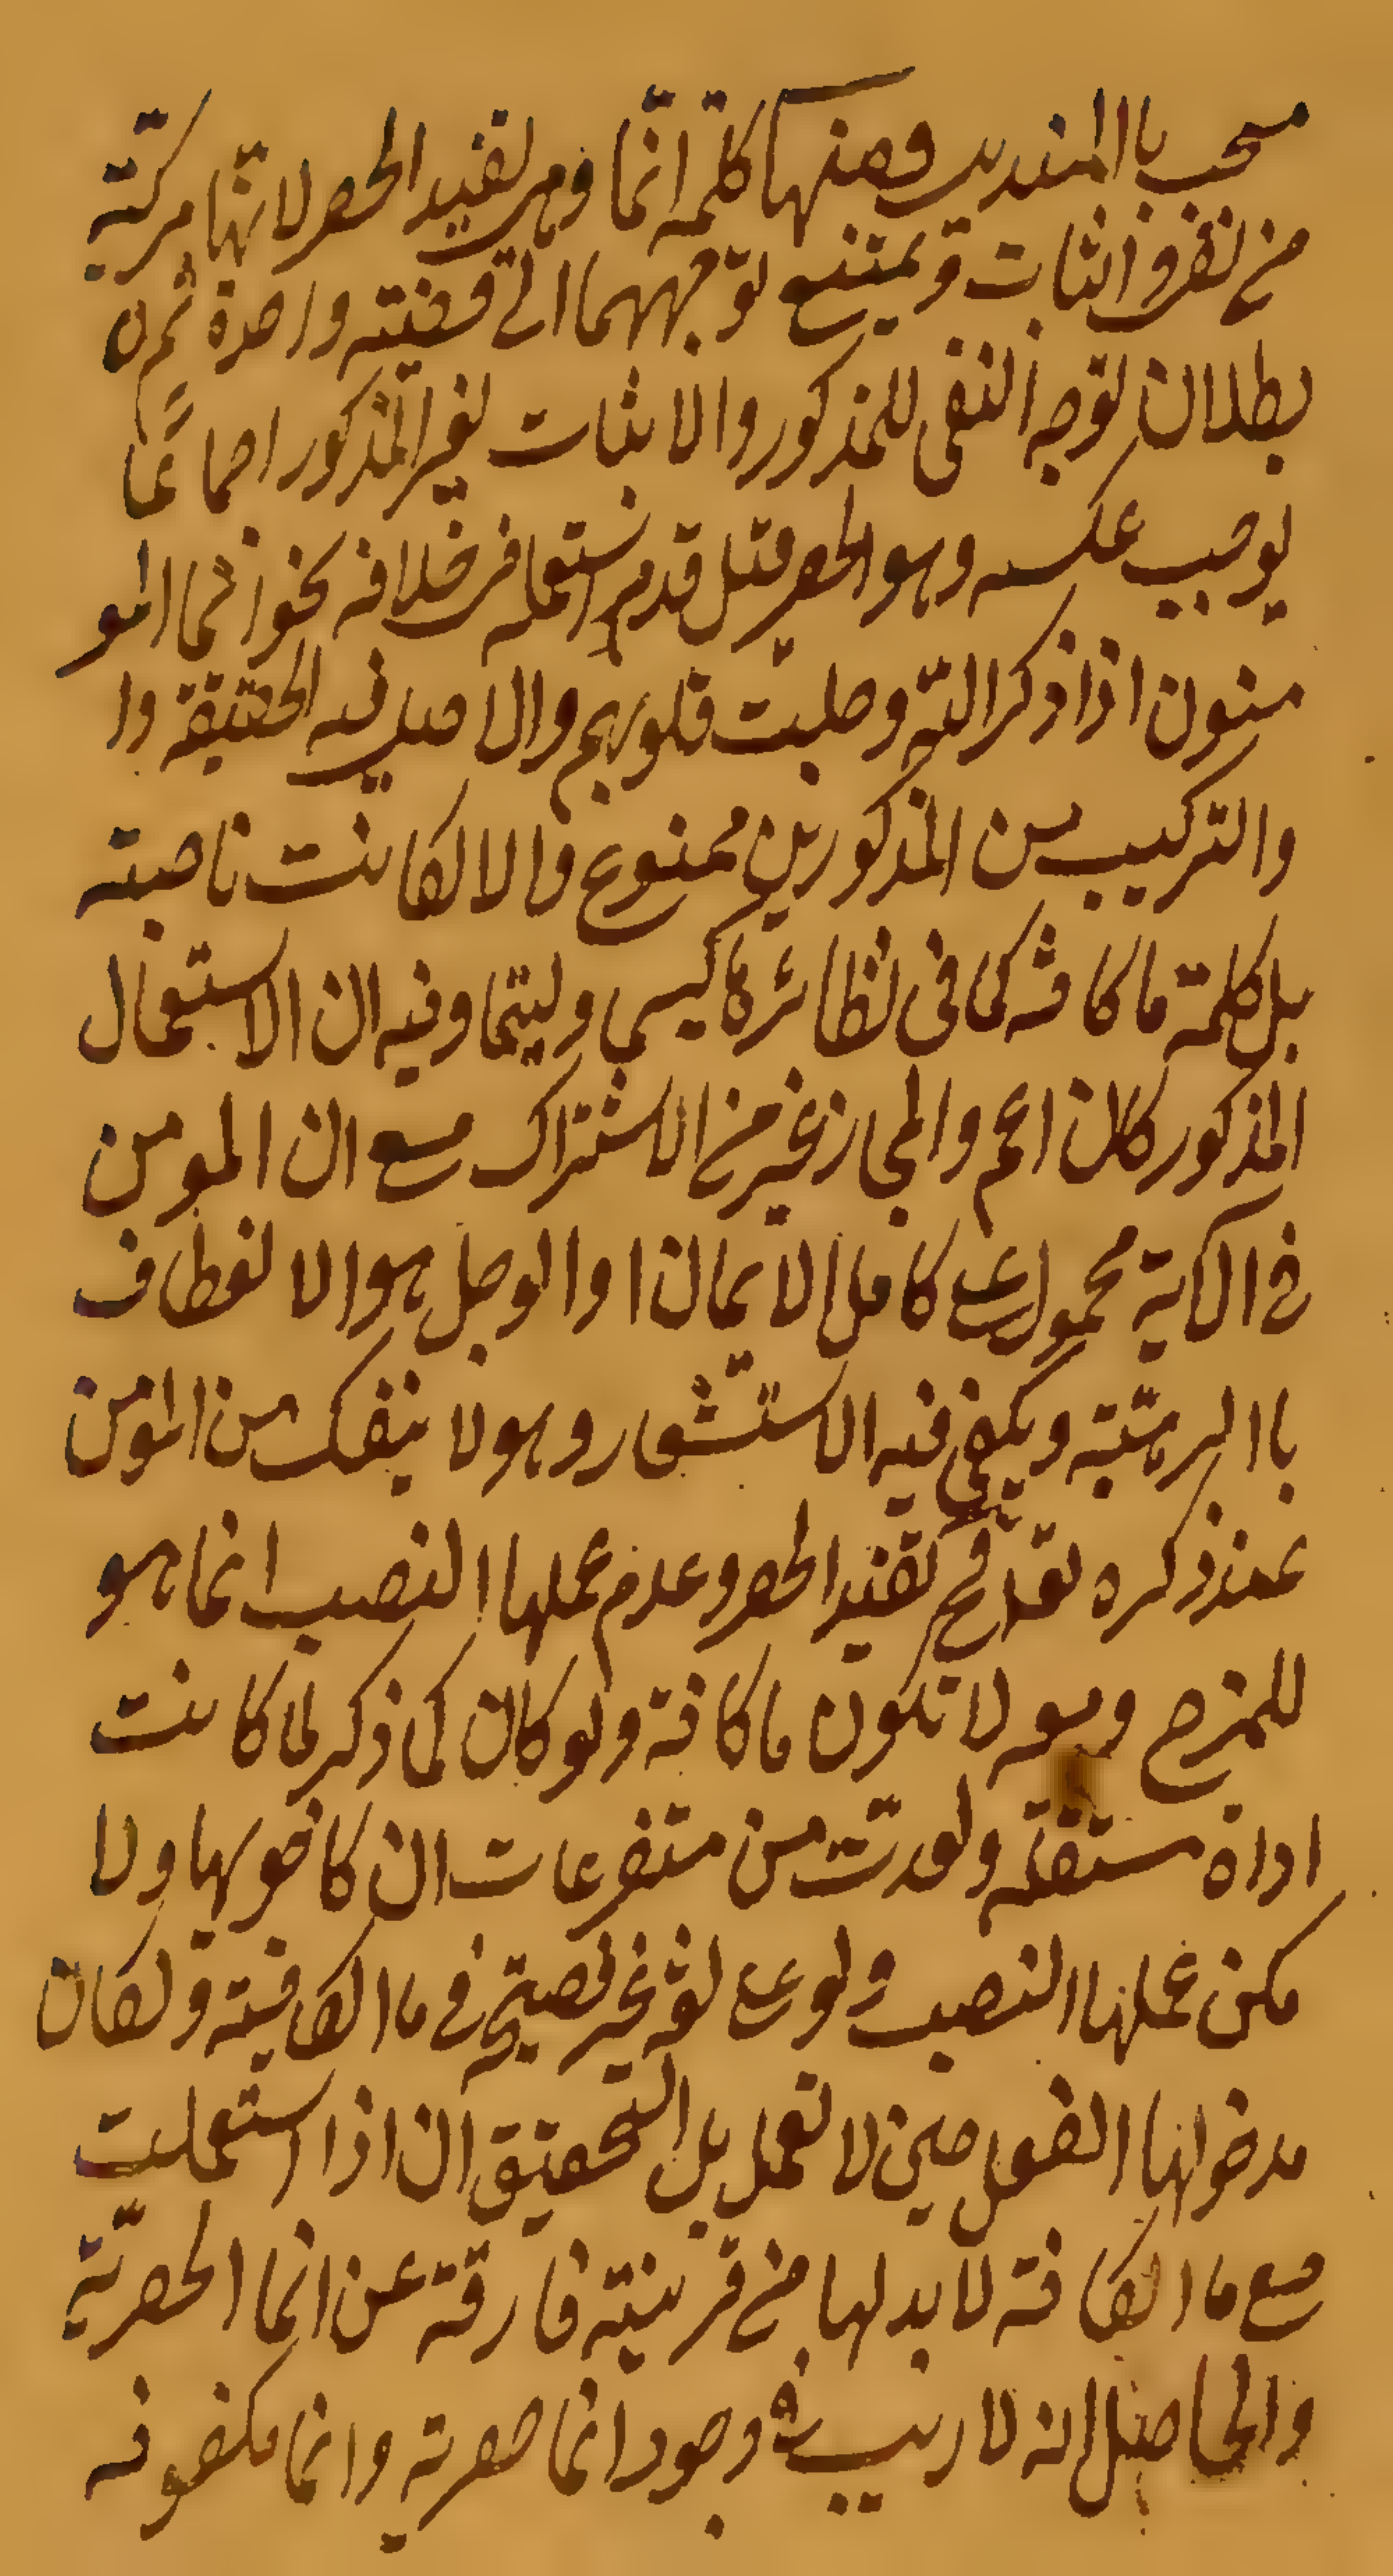 مستحب با المنديل ومنها كلمة انّما وهى لفيد الحصر لانّها مركبّة
من نفى واثبات وَيمتنع توجههما الى قضيته واحدة ثم ان
بطلان توجه النفى للمذكور والاثبات لغير المذكور اجماعًا
يوجب عكسه وهو الحصر قيل قد يستعمل فى خلافه نحو انما المو
منون اذا ذكر اللّه وجلت قلوبهم والاصل فيه الحقيقة وا
والتركيب من المذكورين ممنوع والا لكانت ناصبته
بل كلمة ما كافة كما فى نظائرها كيسى وليتما وفيه ان الاستعمال
المذكور كان اعم والمجاز خير من الاشتراك مع ان المومن
فى الاية محمول على كامل الايمان او الوجل هو الانعطاف
باالرهبّة ويكفى فيه الاستشعار وهو لا ينفك من المومن
عند ذكره تعالى فح تفيد الحصر وعدم عملها النصب انما هو
للمزج ومعه لا تكون ما كافة ولو كان كما ذكر لما كانت
اداة مستقلة ولعدّت من متفرعات ان كاخويها ولا
مكن عملها النصب ولو على لغة غير فصيحة فى ما الكافية ولكان
مدخولها الفعل حين لا تعمل بل التحقيق ان اذا استعملت
مع ما الكافة لا بد لها من قرينية فارقة عن انما الحصريّة
والحاصل انه لا ريب فى وجود انما حصرية وانما مكفوفه